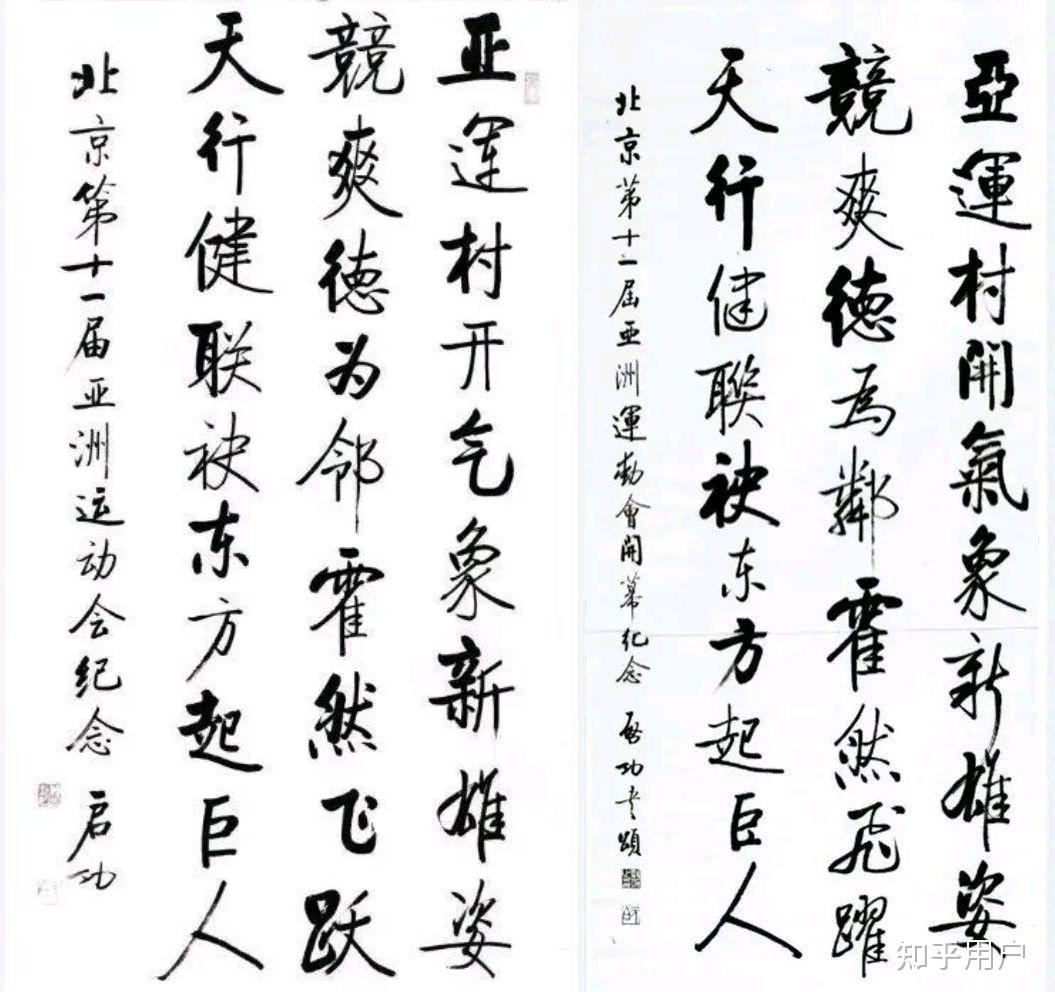 亚运村开气象新雄姿
競爽德为邻霍然飞跃
天行健联袂东方起巨人
北京第十一届亚洲运动会纪念 启功
亞運村開氣象新雄姿
競爽德為鄰霍然飛躍
天行健聯袂东方起巨人
北京第十一届亚洲運動會開幕纪念 啓功书頌
知乎用户